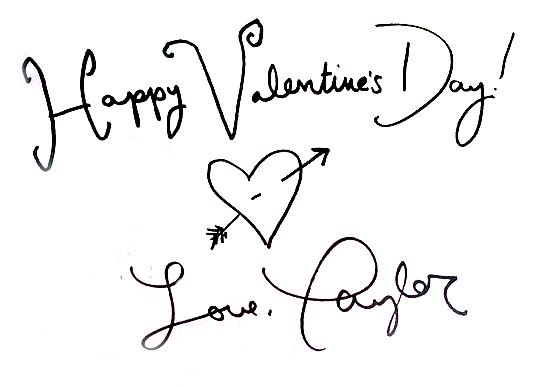 Happy Valentine's Day!
Love, Taylor